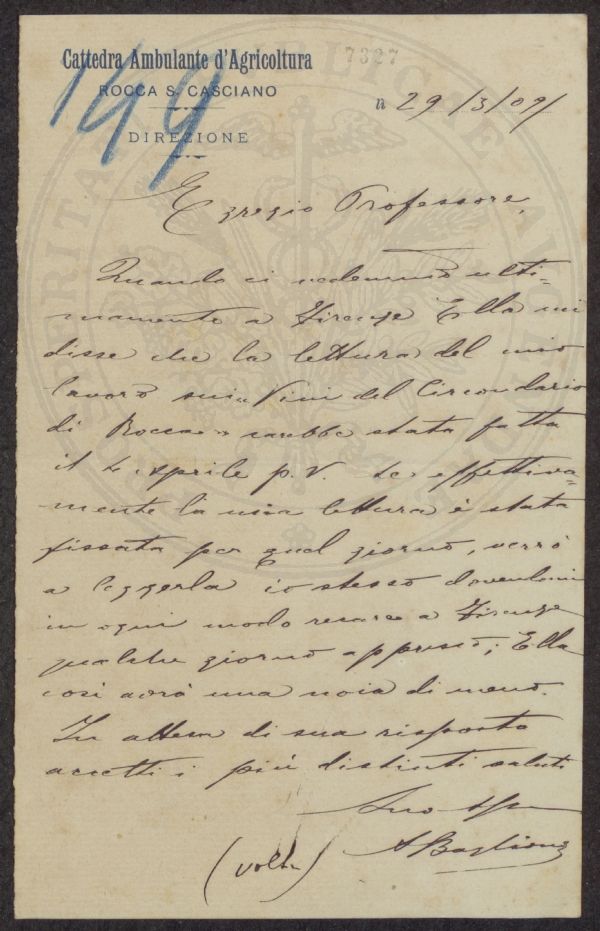 Cattedra Ambulante d'Agricoltura
7327
ROCCA S. CASCIANO
149
DIREZIONE
n 29/3/09/
Egregio Professore,
Quando ci vedemmo ulti=
mamente a Firenze Ella mi
disse che la lettura del mio
lavoro sui "Vini del Circondario
di Rocca" sarebbe stata fatta
il 4 Aprile p.V. Se effettiva=
mente la mia lettura è stata
fissata per quel giorno, verrò
a leggerla io stesso dovendomi
in ogni modo recare a Firenze
qualche giorno appresso; Ella
così avrà una noia di meno.
In attesa di sua risposta
accetti i più distinti saluti
Suo
A Baglioni
(volta)